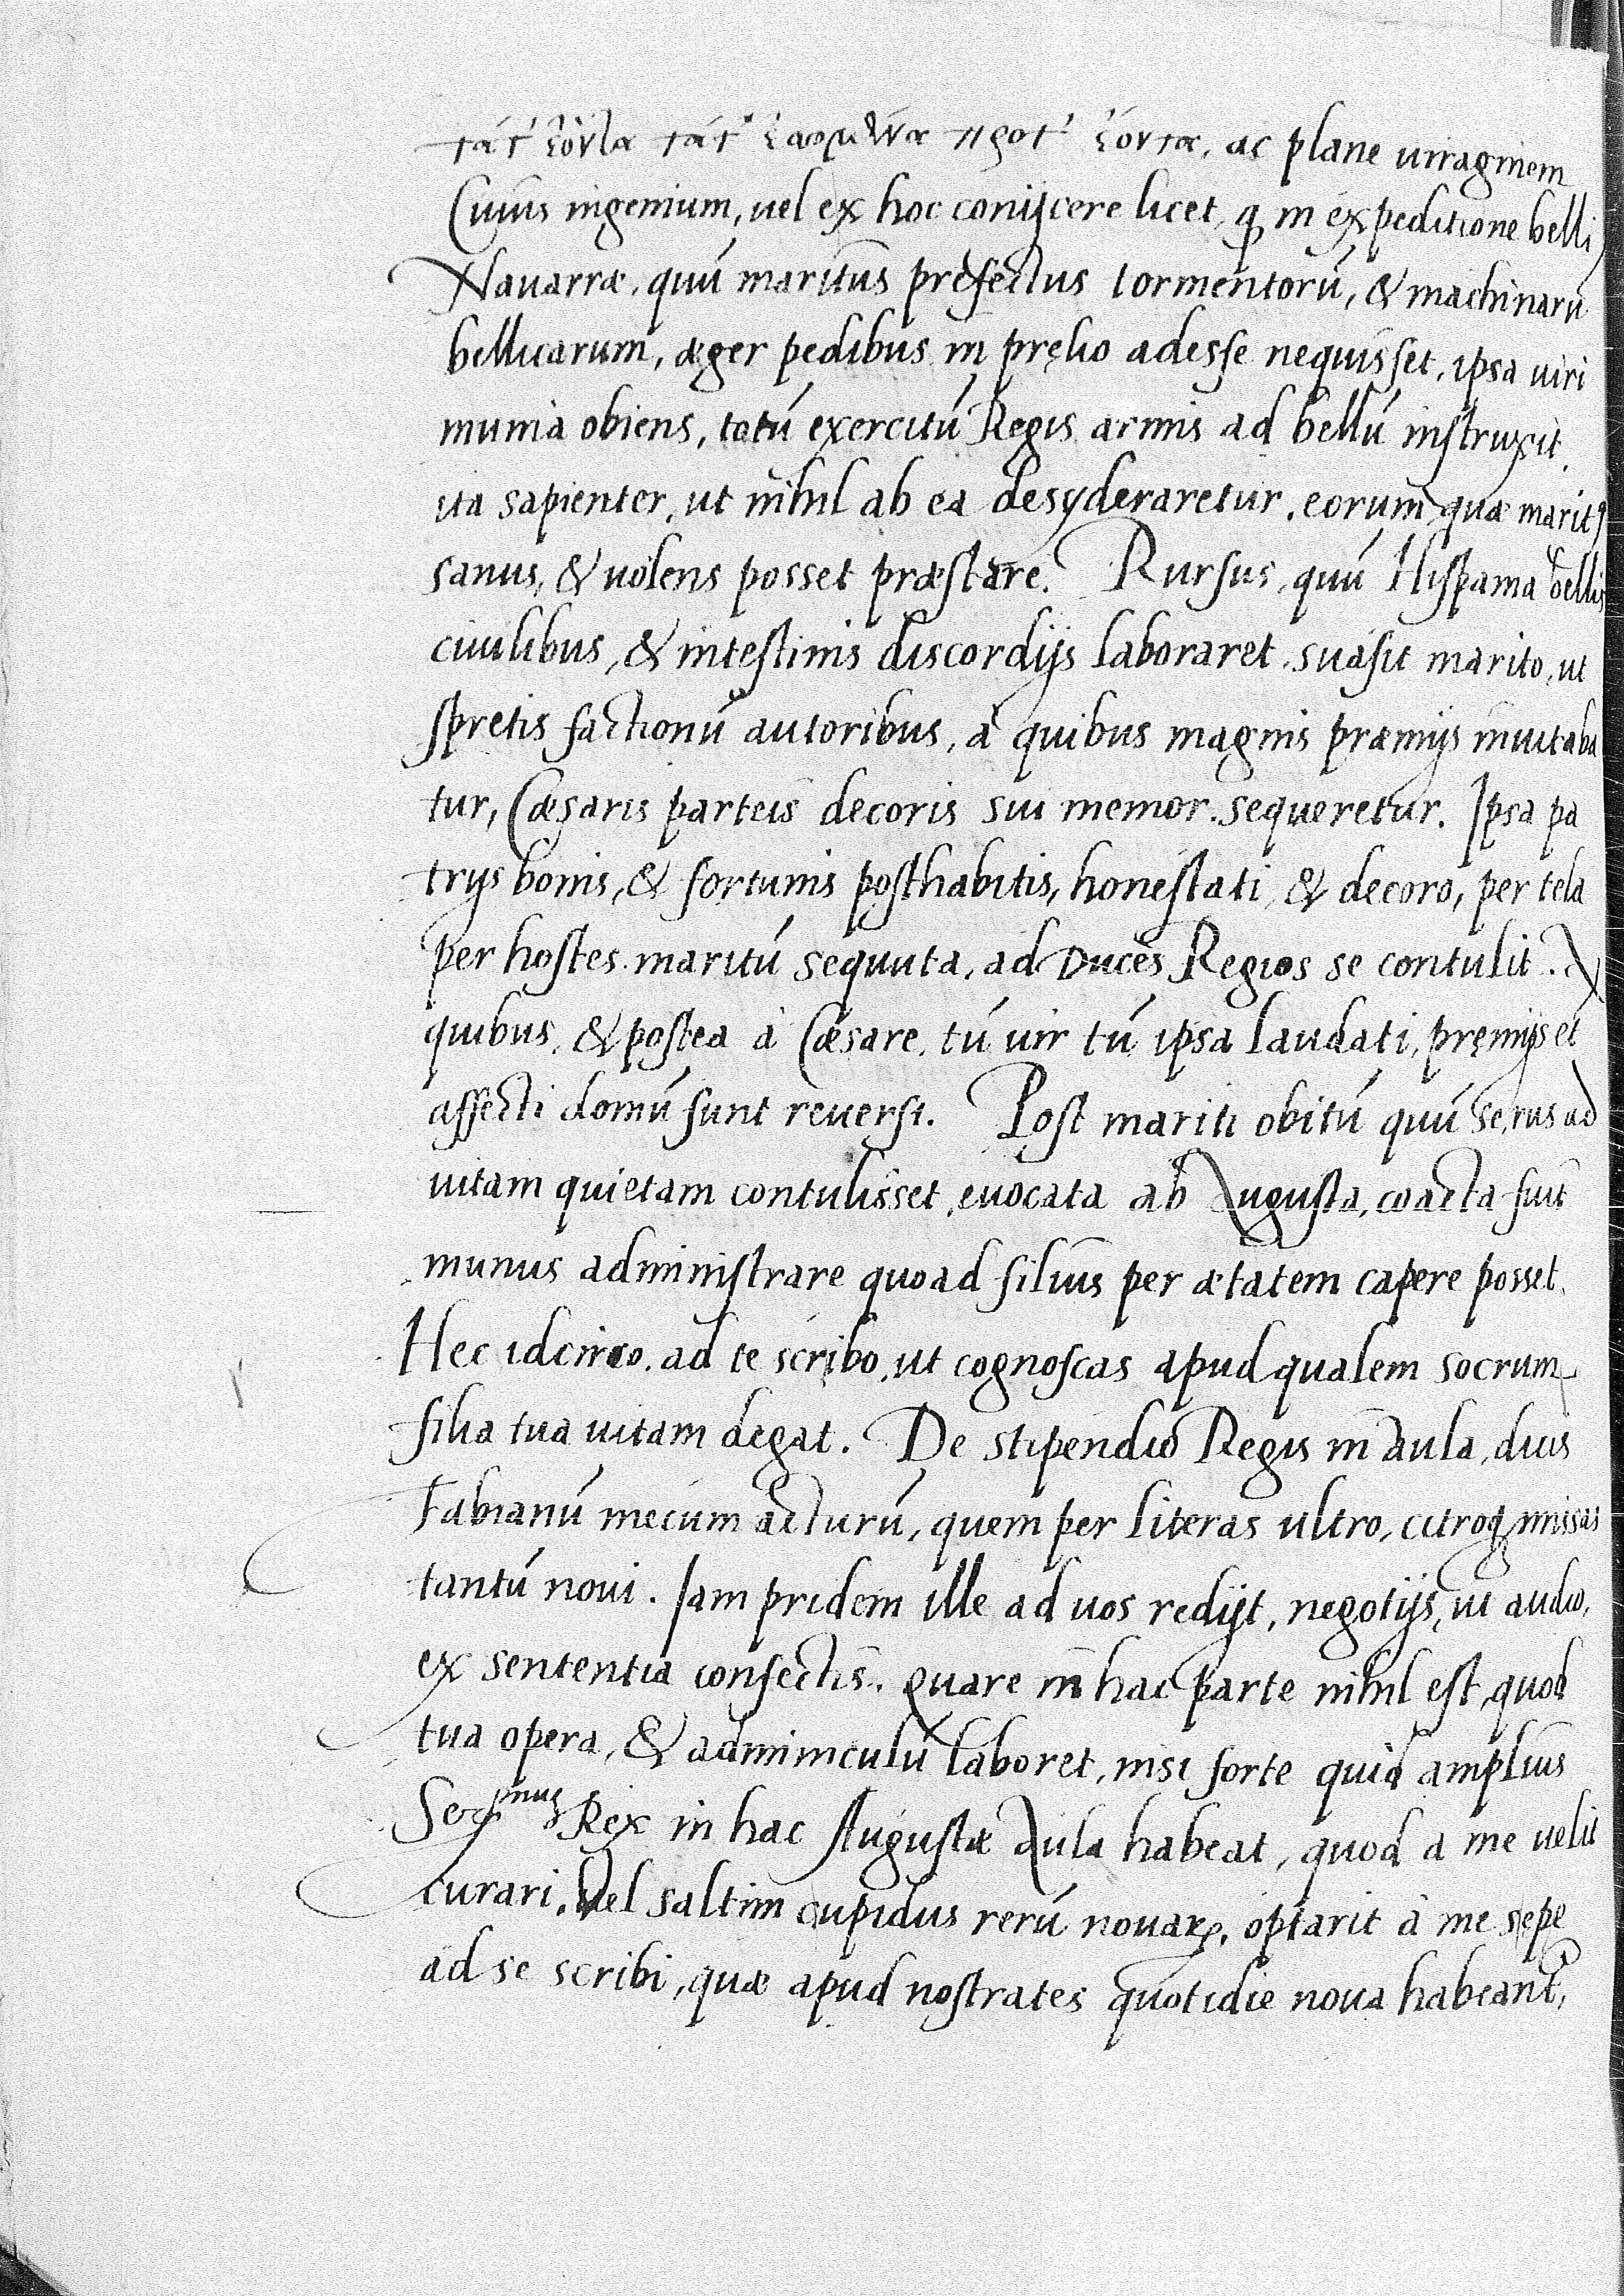 τά τ' ἐόντα τά τ' ἐσσόμενα πρό τ' ἐόντα, ac plane uiraginem
Cuius ingenium, uel ex hoc conijcere licet, q in expeditione belli
Nauarræ, quú maritus prefectus tormentorú, & machinarú
bellicarum, æger pedibus in pręlio adesse nequisset, ipsa uiri
munia obiens, totú exercitú Regis armis ad bellú instruxit,
ita sapienter, ut nihil ab ea desyderaretur, eorum quæ marit9
sanus, & uolens posset præstare. Rursus, quú Hispania bellis
ciuilibus, & intestinis discordijs laboraret, suasit marito, ut
spretis factionú autoribus, à quibus magnis præmijs inuitaba
tur, Cæsaris parteis decoris sui memor sequeretur. Ipsa pa
trijs bonis, & fortunis posthabitis, honestati, & decoro, per tela
per hostes maritú sequuta, ad Duces Regios se contulit. A
quibus, & postea à Cæsare, tú uir tú ipsa laudati, pręmijs et
affecti domú sunt reuersi. Post mariti obitú quú se, rus ad
uitam quietam contulisset, euocata ab Augusta, coacta fuit
munus administrare quoad filius per ætatem capere posset.
Hec idcirco ad te scribo, ut cognoscas apud qualem socrum
filia tua uitam degat. De stipendio Regis in aula, diuis
Fabianú mecum acturú, quem per literas ultro, citroq missas
tantú noui. Iam pridem ille ad uos redijt, negotijs, ut audio,
ex sententia confectis. Quare in hac parte nihil est, quod
tua opera, & adminiculú laboret, nisi forte quid amplius
Ser.mus Rex in hac Augustæ Aula habeat, quod a me uelit
curari. Vel saltim cupidus rerú nouarꝝ, optarit à me sępe
ad se scribi, quæ apud nostrates quotidie noua habeant,